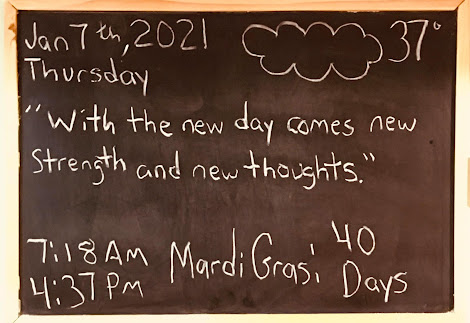 Jan 7th, 2021
37°
Thursday
"With the new day comes new
Strength and new thoughts."
7:18 AM
4:37 PM
Mardi Gras: 40
Days